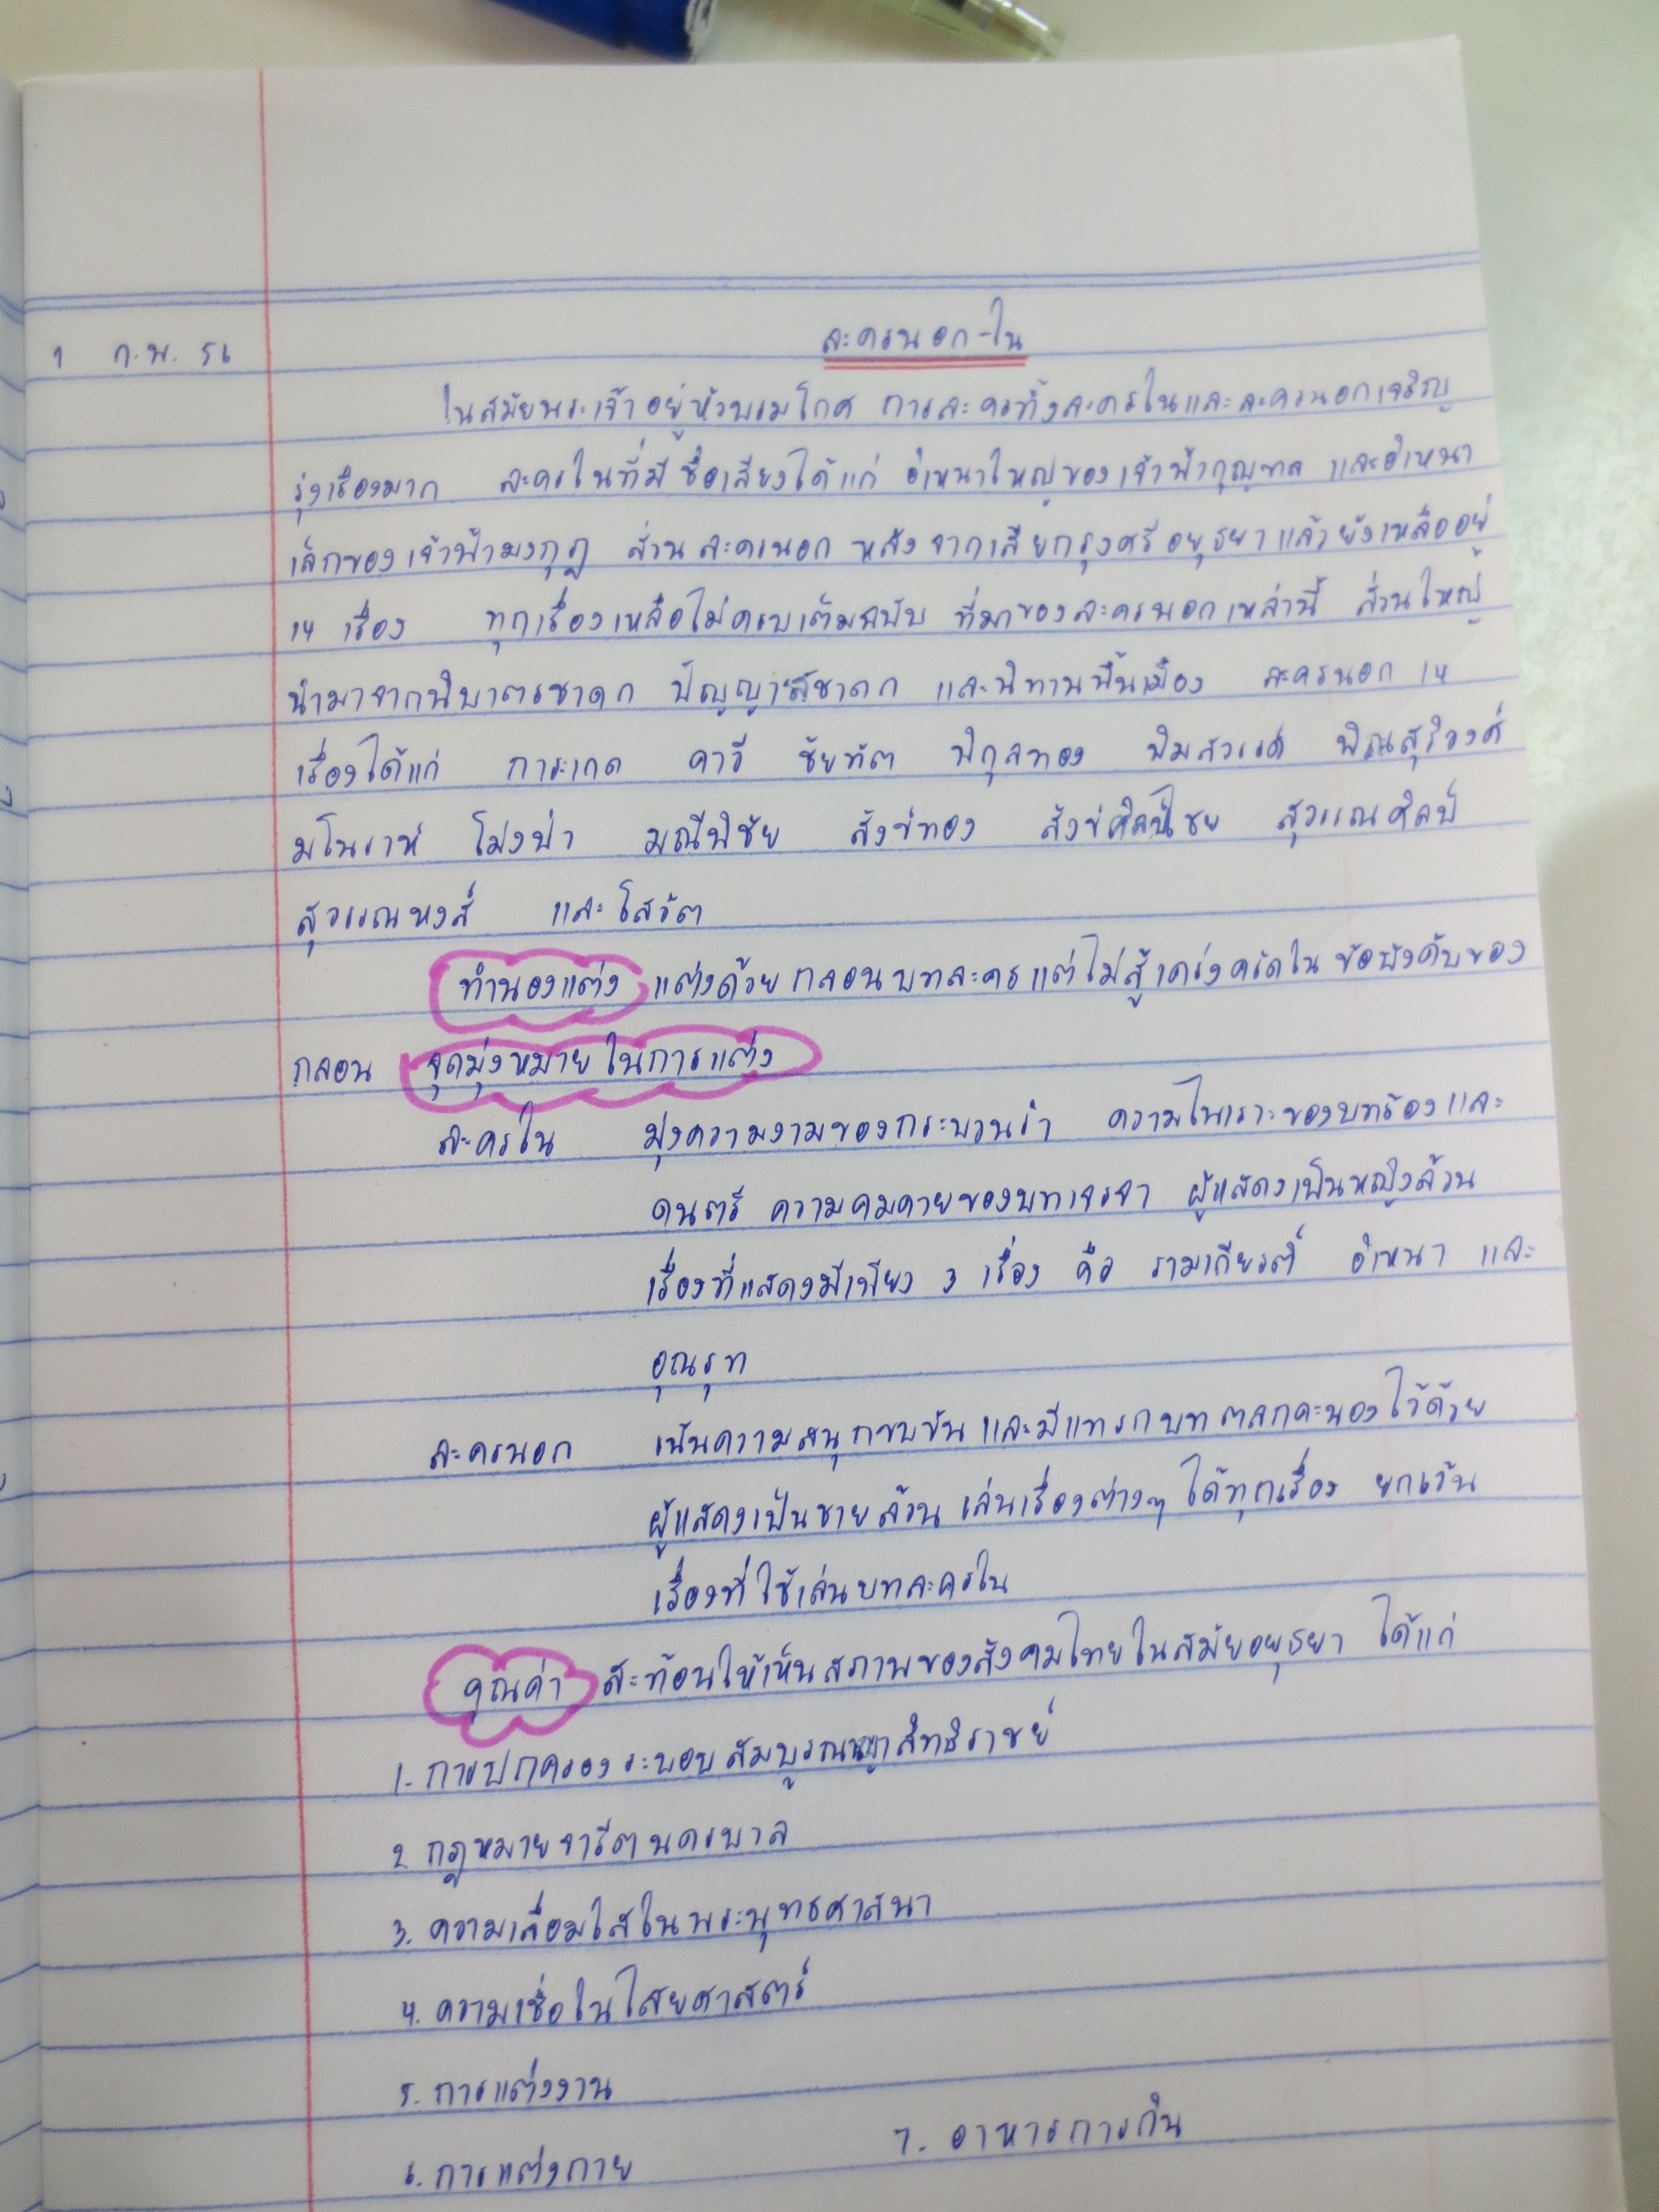 ละครนอก-ใน
1 ก.พ. 56
ในสมัยพระเจ้าอยู่หัวบรมโกศ การละครทั้งละครในและละครนอกเจริญ
รุ่งเรืองมาก ละครในที่มีชื่อเสียงได้แก่ อิเหนาใหญ่ของเจ้าฟ้ากุญฑล และอิเหนา
เล็กของเจ้าฟ้ามงกุฎ ส่วนละครนอก หลังจากเสียกรุงศรีอยุธยาแล้วยังเหลืออยู่
14 เรื่อง ทุกเรื่องเหลือไม่ครบเต็มฉบับ ที่มาของละครนอกเหล่านี้ ส่วนใหญ่
นำมาจากนิบาตรชาดก ปัญญาสชาดก และนิทานพื้นเมือง ละครนอก 14
เรื่องได้แก่ การะเกด คาวี ชัยทัต พิกุลทอง พิมสวรรค์ พิณสุริวงศ์
มโนราห์ โม่งป่า มณีพิชัย สังข์ทอง สังข์ศิลป์ไชย สุวรรณศิลป์
สุวรรณหงส์ และโสวัต
ทำนองแต่ง แต่งด้วยกลอนบทละครแต่ไม่สู้เคร่งครัดในข้อบังคับของ
กลอน จุดมุ่งหมายในการแต่ง
ละครใน มุ่งความงามของกระบวนรำ ความไพเราะของบทร้องและ
ดนตรี ความคมคายของบทเจรจา ผู้แสดงเป็นหญิงล้วน
เรื่องที่แสดงมีเพียง 3 เรื่อง คือ รามเกียรติ์ อิเหนา และ
อุณรุท
ละครนอก เน้นความสนุกขบขันและมีแทรกบทตลกคะนองไว้ด้วย
ผู้แสดงเป็นชายล้วน เล่นเรื่องต่างๆ ได้ทุกเรื่อง ยกเว้น
เรื่องที่ใช้เล่นบทละครใน
คุณค่า สะท้อนให้เห็นสภาพของสังคมไทยในสมัยอยุธยา ได้แก่
1. การปกครองระบอบสมบูรณาญาสิทธิราชย์
2. กฎหมายจารีตนครบาล
3. ความเลื่อมใสในพระพุทธศาสนา
4. ความเชื่อในไสยศาสตร์
5. การแต่งงาน
6. การแต่งกาย 7. อาหารการกิน